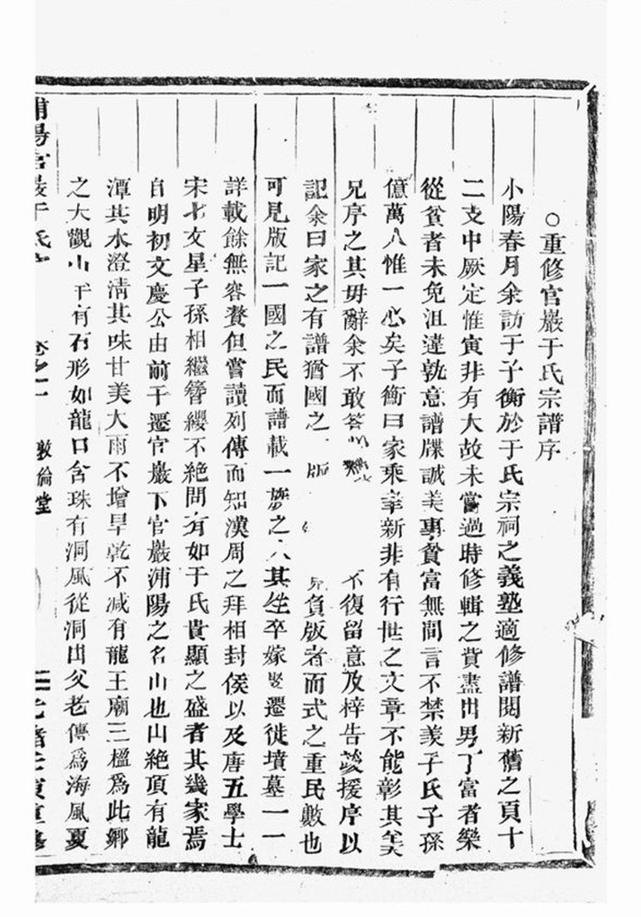 ○重修官巖于氏宗譜序
小陽春月余訪于子衡於于氏宗祠之義塾適修譜閱新舊之頁十
二支中厥定惟寅非有大故未嘗過時修輯之費盡出男丁富者樂
從貧者未免沮達孰意譜牒誠美事貧富無間言不禁羨于氏子孫
億萬人惟一心矣子衡曰家乘筆新非有行世之文章不能彰其美
兄序之其毋辭余不敢答 不復留意及梓告竣援序以
記余曰家之有譜猶國之 版 負版者而式之重民數也
可見版記一國之民而譜載一族之人其生卒嫁娶遷徙墳墓一一
詳載餘無容贅但嘗讀列傳而知漢周之拜相封侯以及唐五學士
宋七文星子孫相繼簪纓不絕問有如于氏貴顯之盛者其幾家焉
自明初文慶公由前于遷官巖下官巖浦陽之名山也山絕頂有龍
潭其水澄清其味甘美大雨不增旱乾不減有龍王廟三楹為此鄉
之大觀山下有石形如龍口含珠有洞風從洞出父老傳為海風夏
浦陽官巖于氏 卷之一 敦倫堂